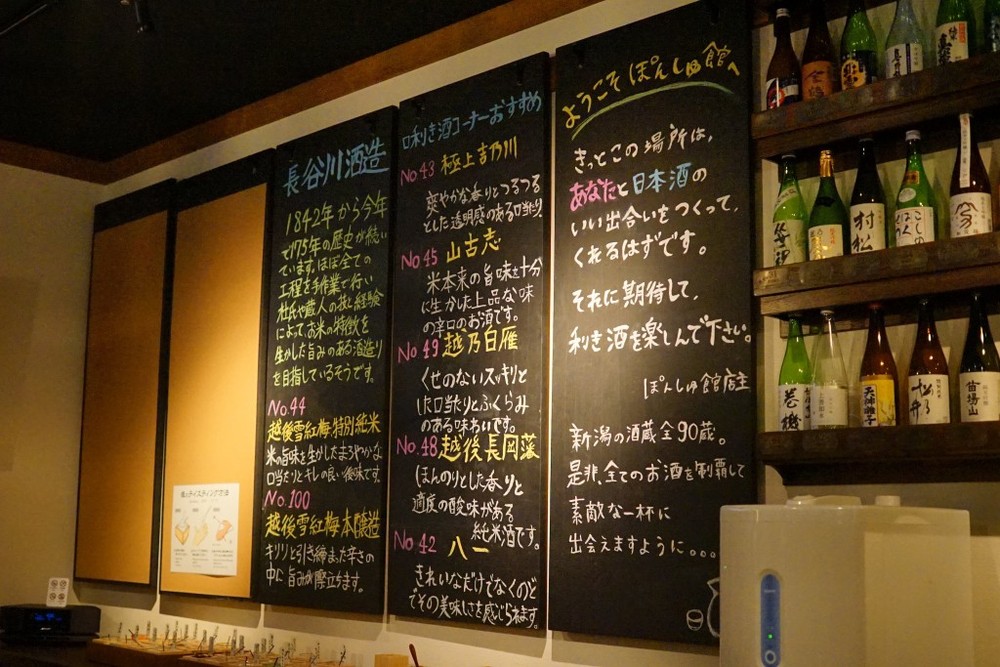 長谷川酒造
1842年から今年
で175年の歴史が続い
ています。ほぼ全ての
工程を手作業で行い
杜氏や蔵人の技と経験
によってお米の特徴を
生かした旨みのある酒造り
を目指しているそうです。
No.44
越後雪紅梅 特別純米
米の旨味を生かしたまろやかな
口当たりとキレの良い後味です。
No.100
越後雪紅梅 本醸造
キリリと引き締まった辛さの
中に旨みが際立ちます。
利き酒コーナーおすすめ
No.43 極上吉乃川
爽やかな香りとつるつる
とした透明感のある口当たり
No 45 山古志
米本来の旨味を十分
に生かした上品な味
の辛口のお酒です。
No 49 越乃白雁
くせのないスッキリと
した口当たりとふくらみ
のある味わいです。
No.48 越後長岡藩
ほんのりとした香りと
適度の酸味がある
純米酒です。
No 42 八一
きれいなだけでなくのど
でその美味しさを感じられます。
ようこそ ぽんしゅ館へ
きっとこの場所は、
あなたと日本酒の
いい出合いをつくって、
くれるはずです。
それに期待して、
利き酒を楽しんで下さい。
ぽんしゅ館店主
新潟の酒蔵全90蔵。
是非、全てのお酒を制覇して
素敵な一杯に
出会えますように。。。
村松
巻機
天神囃子
苗場山